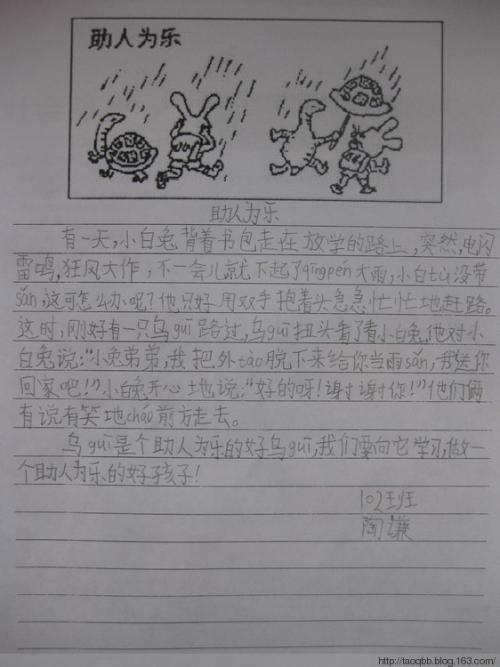 助人为乐
助人为乐
有一天,小白兔背着书包走在放学的路上,突然,电闪
雷鸣,狂风大作,不一会儿就下起了qīngpén大雨,小白tù没带
sǎn,这可怎么办呢?他只好用双手抱着头急急忙忙地赶路。
这时,刚好有一只乌guī路过,乌guī扭头看了看小白兔,他对小
白兔说:“小兔弟弟,我把外tào脱下来给你当雨sǎn,我送你
回家吧!”小白兔开心地说:“好的呀!谢谢你!”他们俩
有说有笑地cháo前方走去。
乌guī是个助人为乐的好乌guī,我们要向它学习,做一
个助人为乐的好孩子!
102班
陶谦
http://taoqbb.blog.163.com/